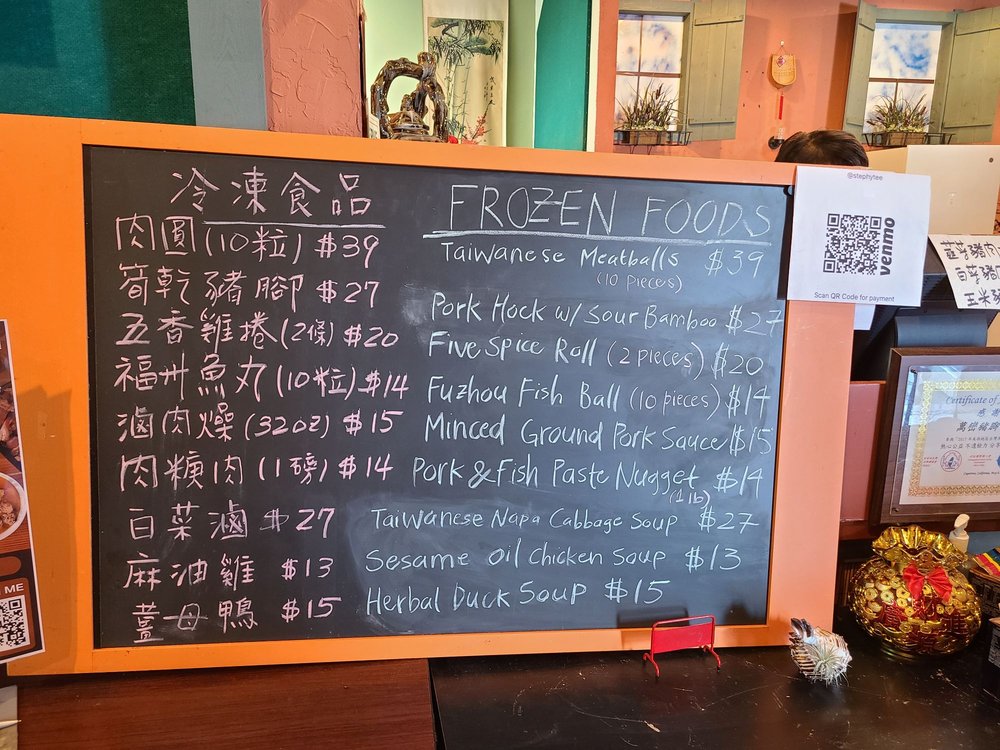 冷凍食品
肉圓(10粒) $39
筍乾豬腳 $27
五香雞捲(2條) $20
福州魚丸(10粒) $14
滷肉燥(32oz) $15
肉羹肉(1磅) $14
白菜滷 $27
麻油雞 $13
薑母鴨 $15
FROZEN FOODS
Taiwanese Meatballs $39
(10 pieces)
Pork Hock w/ Sour Bamboo $27
Five Spice Roll (2 pieces) $20
Fuzhou Fish Ball (10 pieces) $14
Minced Ground Pork Sauce $15
Pork & Fish Paste Nugget $14
(1lb)
Taiwanese Napa Cabbage Soup $27
Sesame oil Chicken Soup $13
Herbal Duck Soup $15
@stephytee
venmo
Scan QR Code for payment
白菜豬
玉米
Certificate of
萬巒豬腳
ME